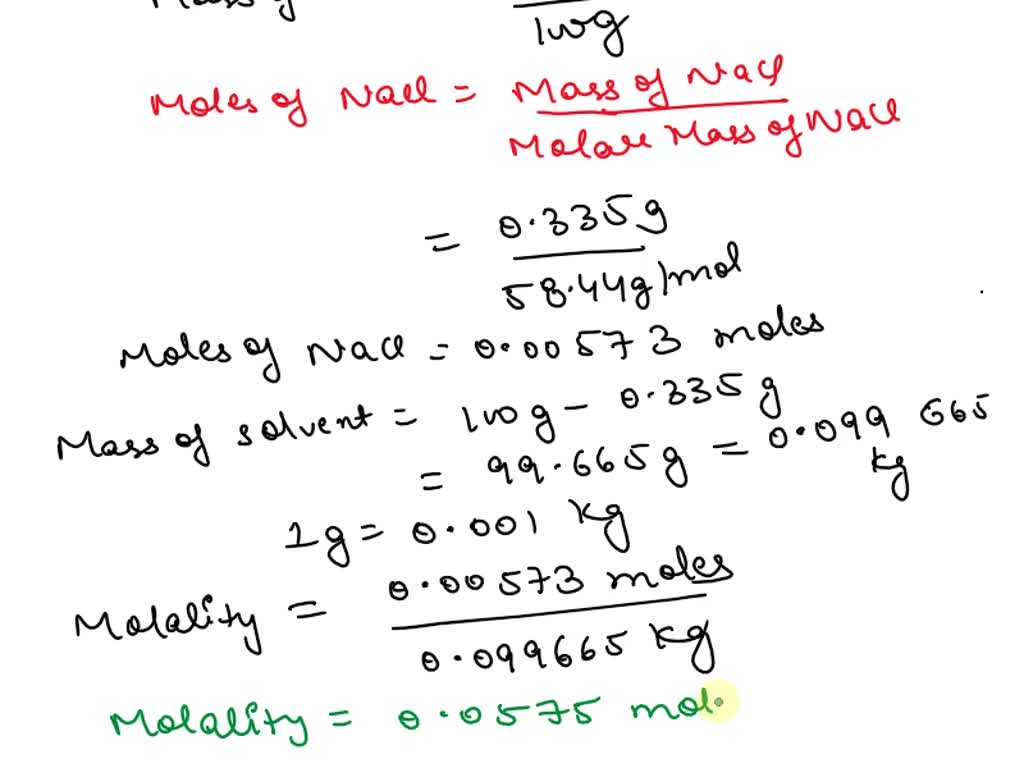 100g
Moles of NaCl = Mass of NaCl
Molar Mass of NaCl
= 0.335g
58.44g/mol
Moles of NaCl = 0.00573 moles
Mass of solvent = 100g - 0.335g
= 99.665g = 0.099 665
kg
1g = 0.001 kg
Molality = 0.00573 moles
0.099665 kg
Molality = 0.0575 mol